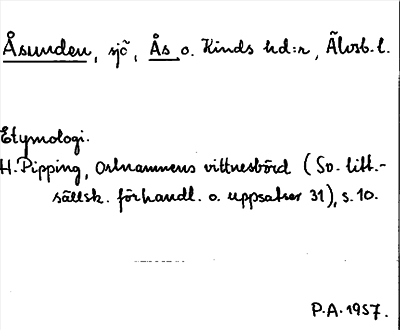 Åsunden, sjö, Ås o. Kinds hd:r, Älvsb. l.
Etymologi.
H. Pipping, Ortnamnens vittnesbörd (Sv. litt.-
sällsk. förhandl. o. uppsatser 31), s. 10.
P.A. 1957.